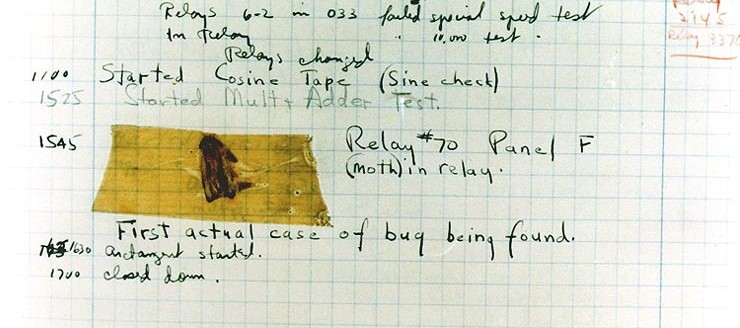 Relays 6-2 in 033 failed special speed test
in relay " 10,000 test.
Relays changed
1100 Started Cosine Tape (Sine check)
1525 Started Mult + Adder Test.
1545 Relay #70 Panel F
(moth) in relay.
First actual case of bug being found.
1630 arctangent started.
1700 closed down.
Relay
2145
Relay 3370